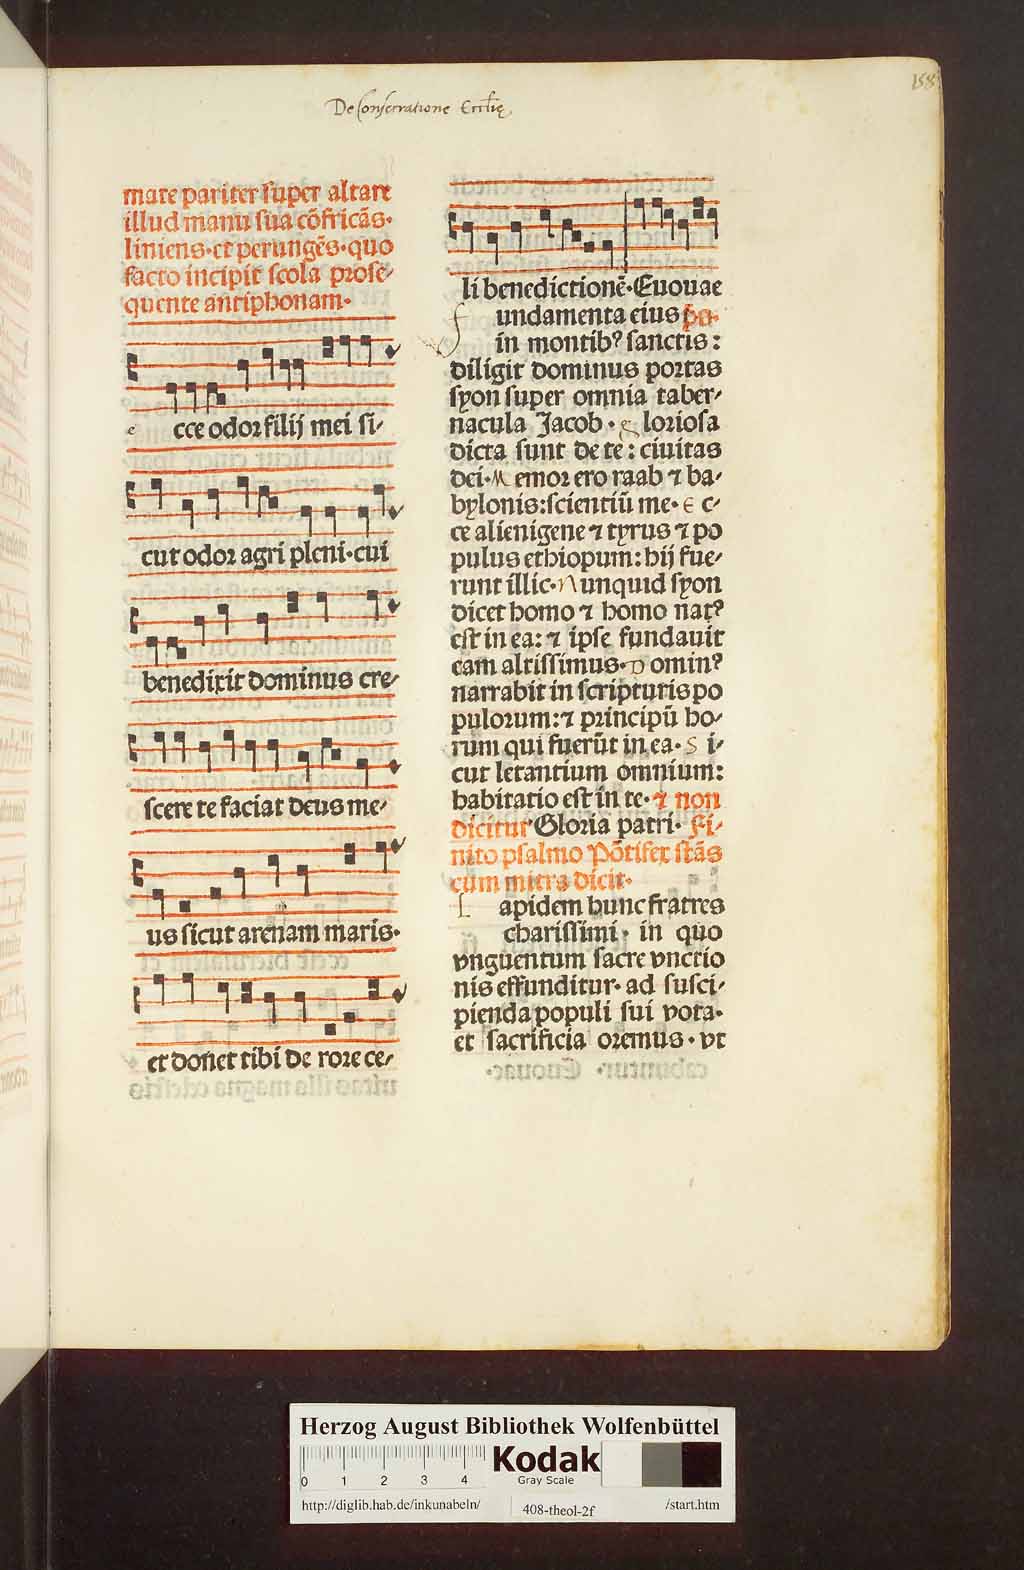 De Consecratione Eccl̄ię
158
mare pariter super altare
illud manu sua cōfricās·
liniens·et perungēs·quo
facto incipit scola prose-
quente antiphonam·
e cce odor filij mei si-
cut odor agri pleni·cui
benedixit dominus cre-
scere te faciat deus me-
us sicut arenam maris·
et donet tibi de rore ce-
li benedictionē·Euouae
f undamenta eius ps·
in montibꝰ sanctis:
diligit dominus portas
syon super omnia taber-
nacula Jacob·g loriosa
dicta sunt de te: ciuitas
dei·M emor ero raab ⁊ ba-
bylonis:scientiū me·E c-
ce alienigene ⁊ tyrus ⁊ po
pulus ethiopum:hij fue-
runt illic·N unquid syon
dicet homo ⁊ homo natꝰ
est in ea: ⁊ ipse fundauit
eam altissimus·D ominꝰ
narrabit in scripturis po
pulorum:⁊ principū ho-
rum qui fuerūt in ea·S i-
cut letantium omnium:
habitatio est in te·⁊ non
dicitur Gloria patri· Fi-
nito psalmo Pōtifex stās
cum mitra dicit·
L apidem hunc fratres
charissimi· in quo
vnguentum sacre vnctio
nis effunditur· ad susci-
pienda populi sui vota·
et sacrificia oremus·vt
Herzog August Bibliothek Wolfenbüttel
0 1 2 3 4
Kodak
Gray Scale
http://diglib.hab.de/inkunabeln/ 408-theol-2f /start.htm